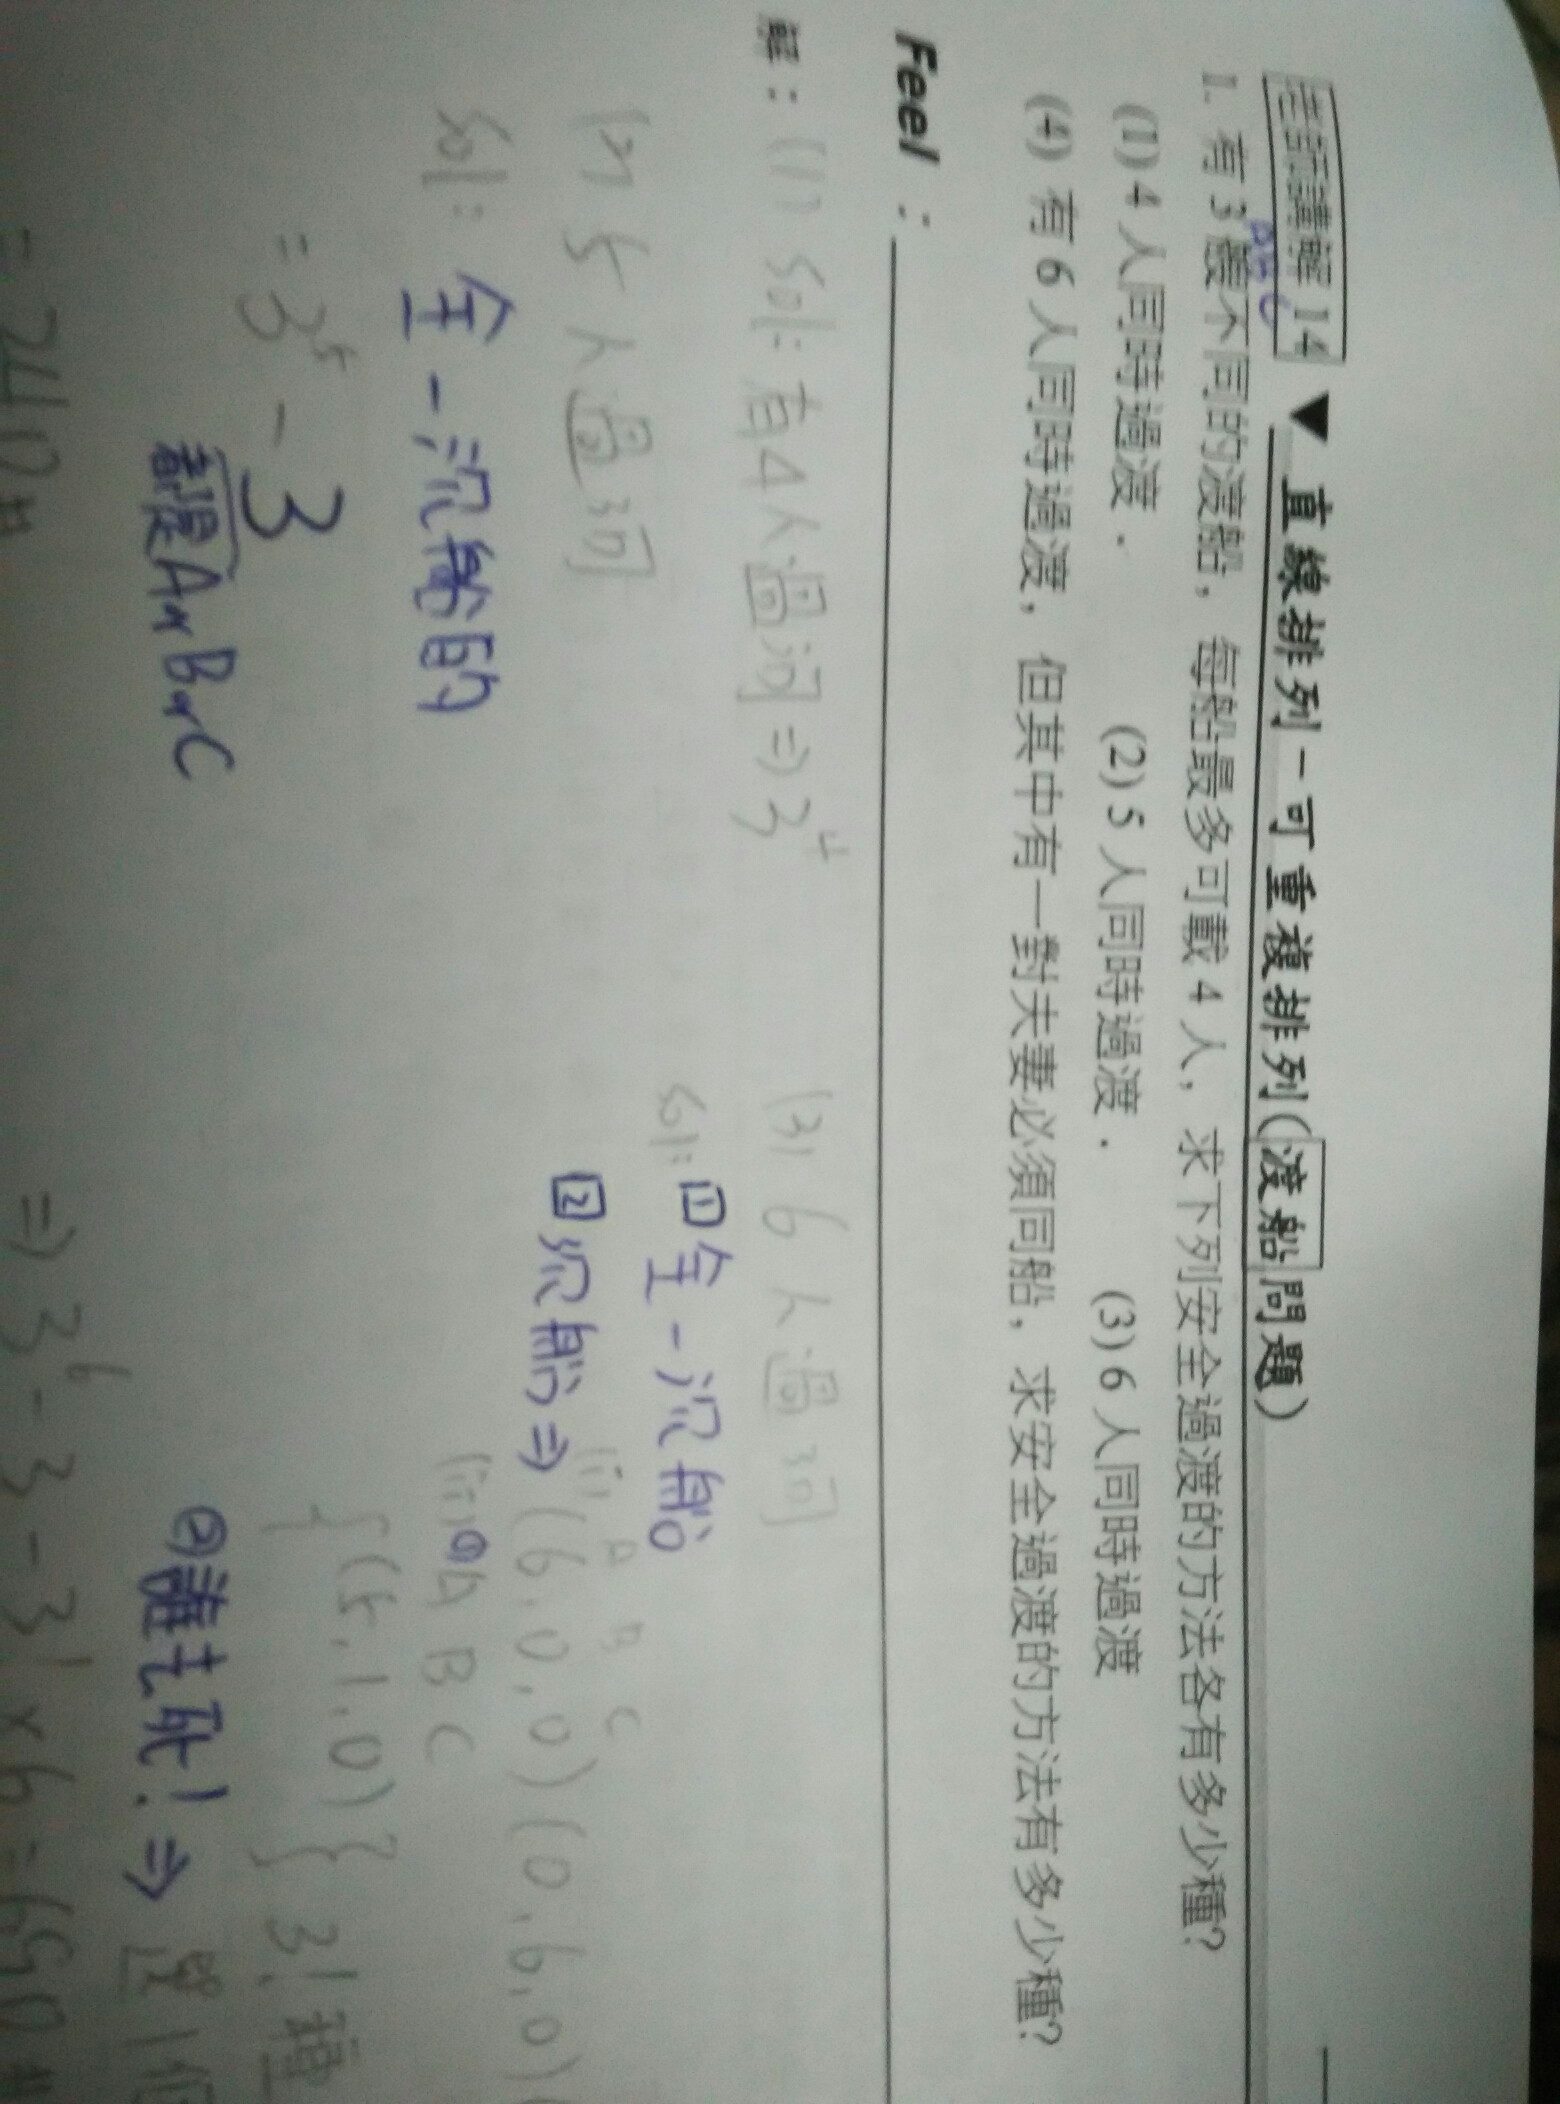 老師講解 14 ▼ 直線排列－可重複排列(渡船問題)
1. 有 3 艘不同的渡船，每船最多可載 4 人，求下列安全過渡的方法各有多少種?
(1) 4 人同時過渡．
(2) 5 人同時過渡．
(3) 6 人同時過渡
(4) 有 6 人同時過渡，但其中有一對夫妻必須同船，求安全過渡的方法有多少種?
Feel：
解：(1) sol: 有4人過河 ⇒ 3⁴
(2) 5人過河
sol: 全 - 沉船的
= 3⁵ - 3
都是A or B or C
= 240 #
(3) 6人過河
sol: 1 全 - 沉船
A B C
2 沉船 ⇒ (i) (6,0,0) (0,6,0) (
(ii) ① A B C
{(5,1,0)} 3! 種
② 誰去死! ⇒ 選1個
⇒ 3⁶ - 3 - 3! × 6 = 690 #